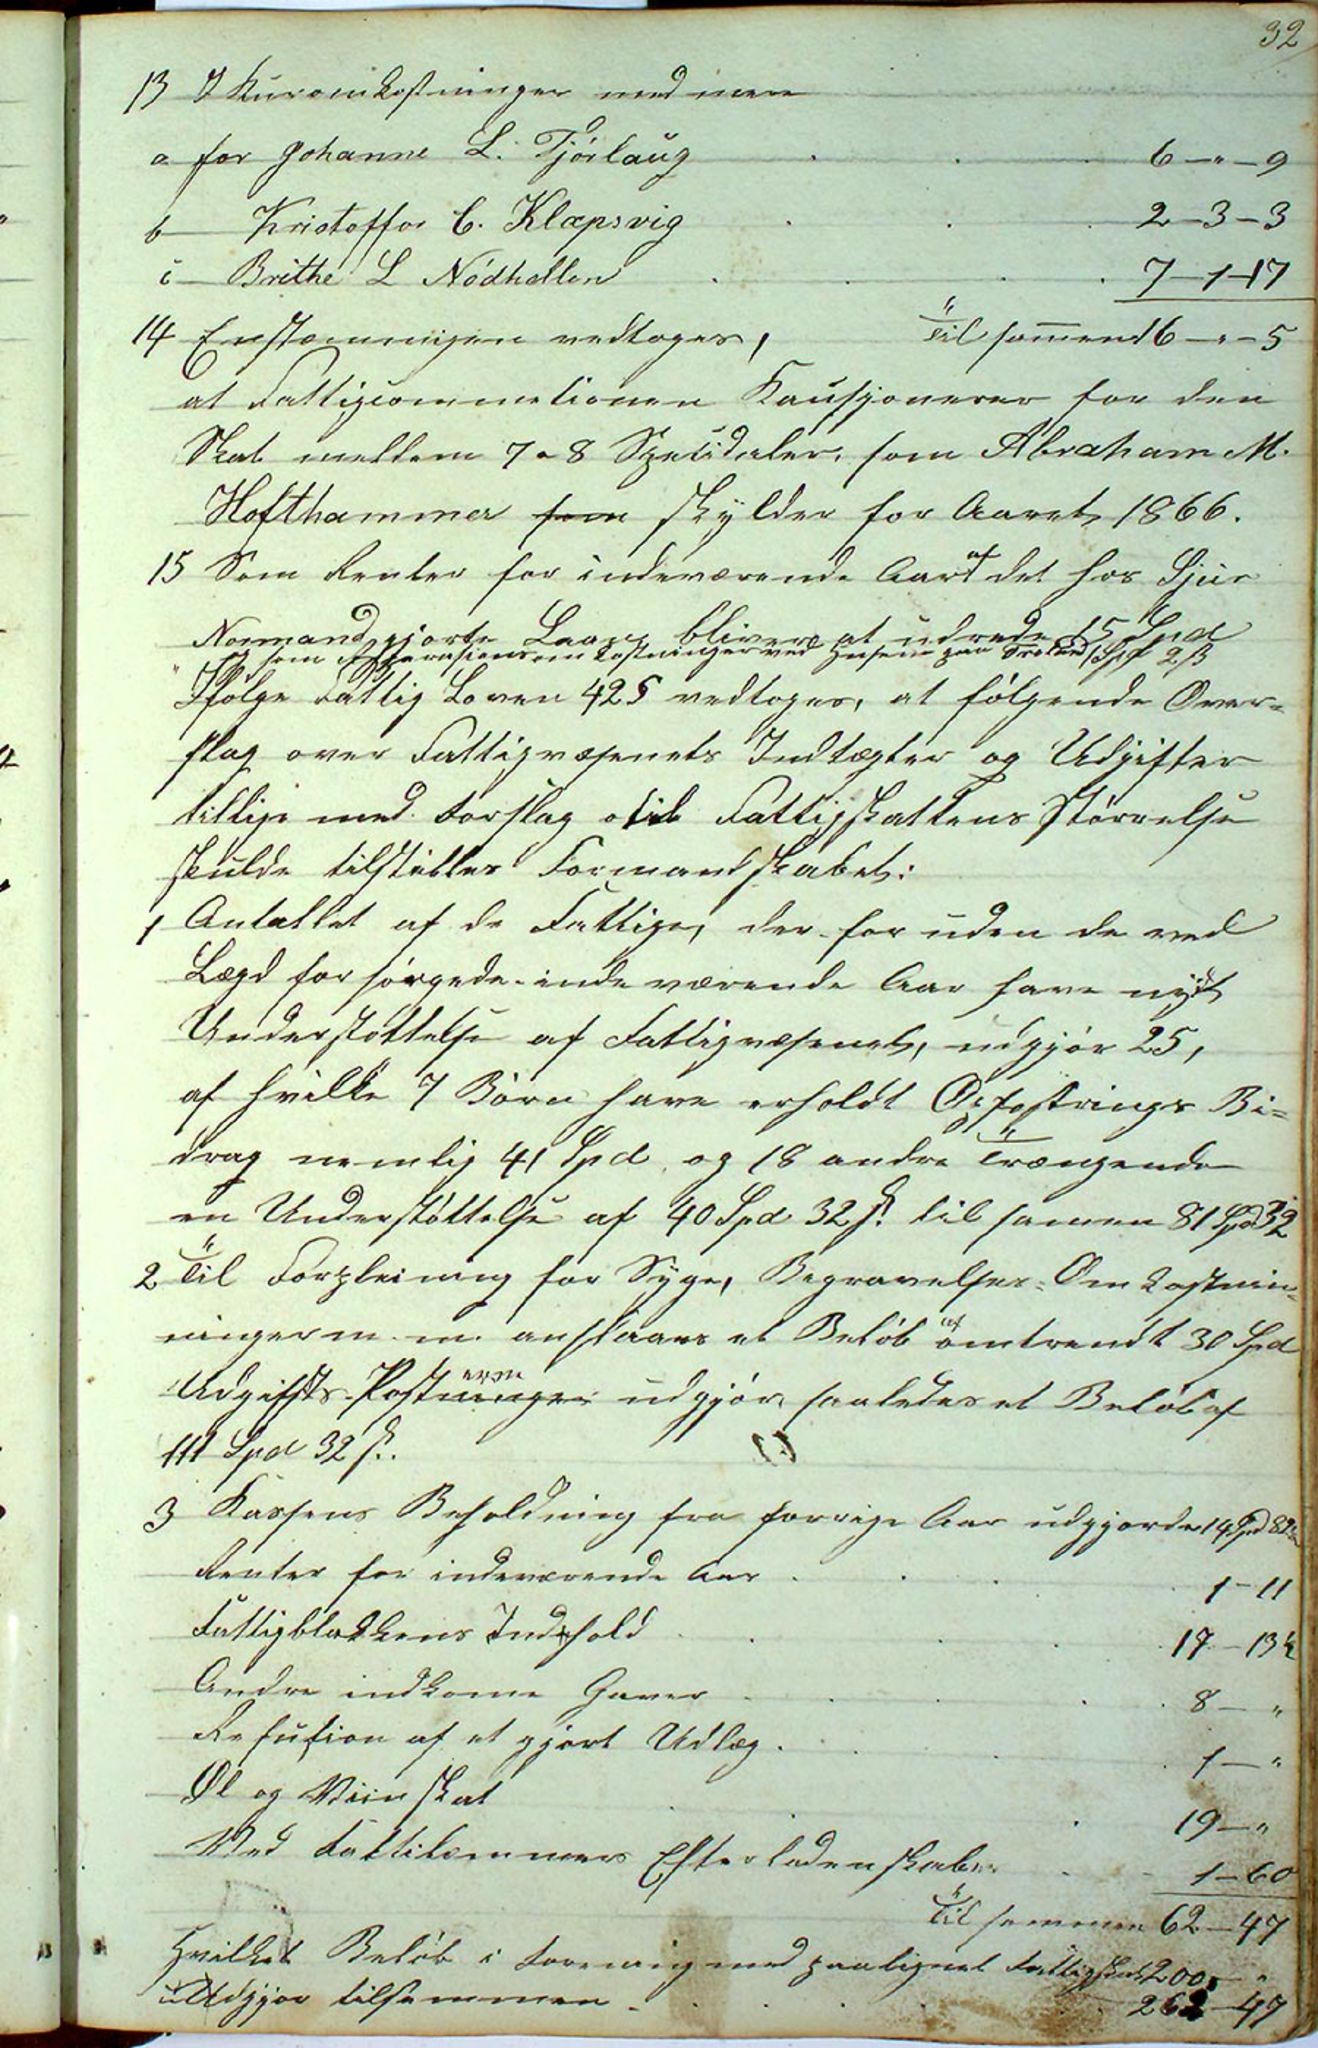 32
13 I Kuromkostninger med mere
a for Johanne L. Tjörlaug 6 - " - 9
b — Kristoffer C. Klæpsvig 2 - 3 - 3
c — Brithe L Nödhellen 7 - 1 - 17
14 Enstemmigen vedtoges, Til sammen 16 - " - 5
at Fattigcommetionen Kausjonerer for den
Skat mellem 7 a 8 Speciedaler, som Abraham M.
Hofthammer som skylder for Aaret 1866.
15 Som Renter for indeværende Aar af det hos Sjur
Normand gjorte Laan bliver at udrede 15 Spd
og som omkostninger ved Husene paa 1 Spd 2 ß
Ifølge Fattig Loven 42 § vedtoges, at følgende Over-
slag over Fattigvæsenets Indtægter og Udgifter
tillige med Forslag til Fattigskattens Størrelse
skulde tilstilles Formandskabet:
1 Antallet af de Fattige, der foruden de ved
Lægd forsörgede indeværende Aar have nydt
Understøttelse af Fattigvæsenet, udgjör 25,
af hvilke 7 Börn have erholdt Opfostrings Bi-
drag nemlig 41 Spd og 18 andre Trængende
en Understöttelse af 40 Spd 32 s. til samen 81 Spd 32
2 Til Forpleining for Syge, Begravelses-Omkostnin-
ninger m. m. anslaaes et Belöb af omtrendt 30 Spd
Udgifts-Postninger erne udgjör saaledes et Belöb af
111 Spd 32 s.
3 Kassens Beholdning fra forrige Aar udgjorde 14 Spd
Renter for indeværende Aar 1 - 11
Fattigblokkens Indhold 17 - 13½
Andre indkomne Gaver 8 - "
Refusion af et gjort Udlæg 1 - "
Øl og Viinskat 19 - "
Ved Fattiklemmers Efterladenskaber 1 - 60
Til sammen 62 - 47
Hvilket Belöb i Forening med paalignet Fattigskat 200 - "
Udgjör tilsammen 262 - 47